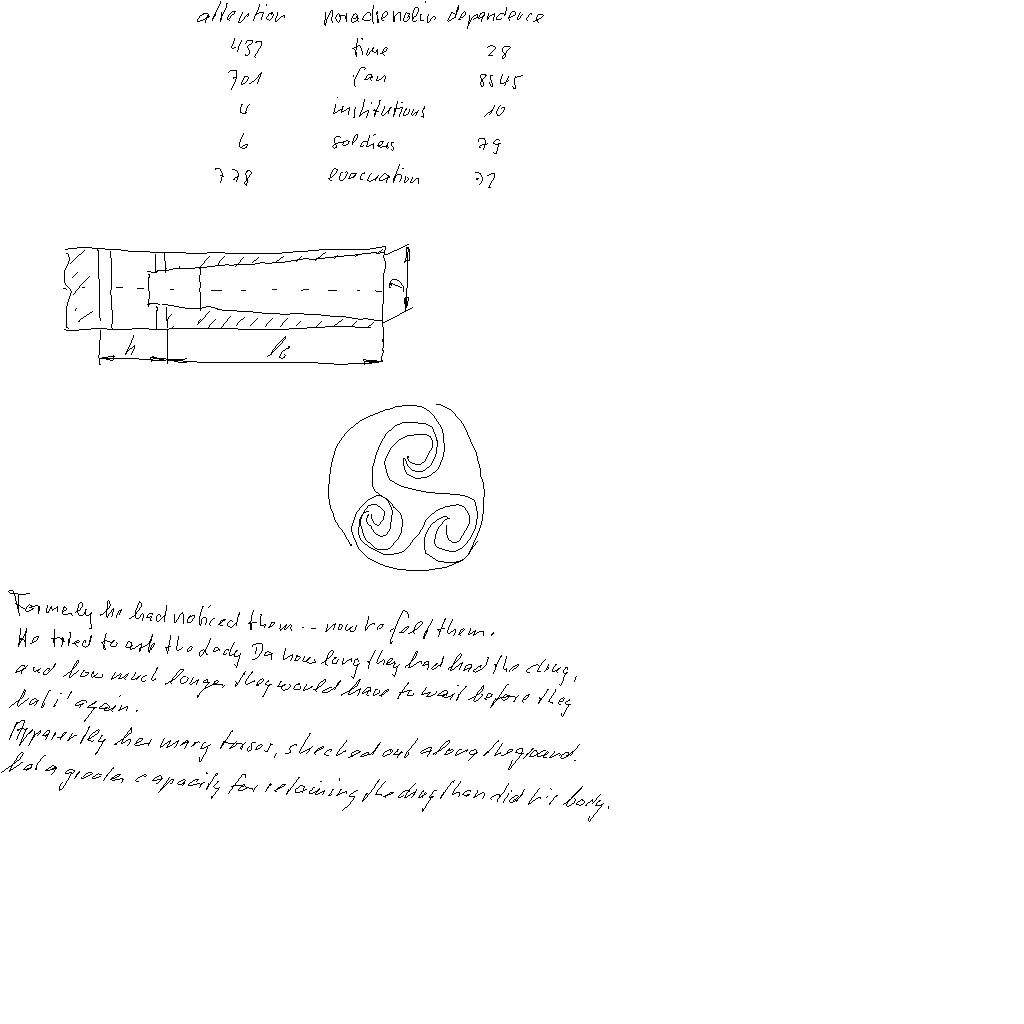 attention noradrenolin dependence
437 time 28
701 can 8545
4 institutions 10
6 soldiers 79
778 evacuation 71
D
h l6
Formerly he had noticed them -- now he felt them.
He tried to ask the Lady Da how long they had had the drug,
and how much longer they would have to wait before they
had it again.
Apparently her many torsos, stretched out along the ground.
had a greater capacity for retaining the drug than did his body.